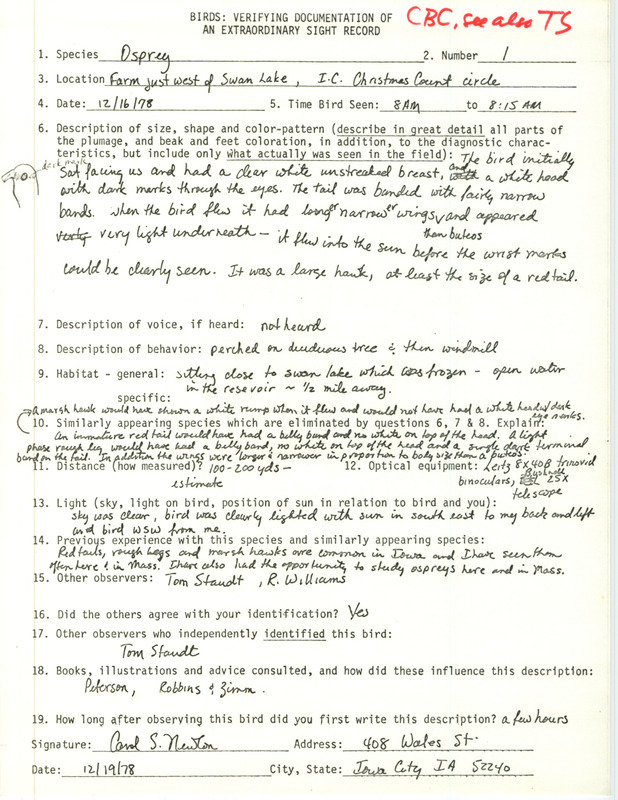 BIRDS: VERIFYING DOCUMENTATION OF
AN EXTRAORDINARY SIGHT RECORD
CBC, see also TS
1. Species Osprey 2. Number 1
3. Location Farm just west of Swan Lake, I.C. Christmas Count circle
4. Date: 12/16/78 5. Time Bird Seen: 8AM to 8:15 AM
6. Description of size, shape and color-pattern (describe in great detail all parts of
the plumage, and beak and feet coloration, in addition, to the diagnostic charac-
teristics, but include only what actually was seen in the field): The bird initially
dark mark
sat facing us and had a clear white unstreaked breast, and a white head
with dark marks through the eyes. The tail was banded with fairly narrow
bands. when the bird flew it had longer narrower wings, and appeared
than buteos
very light underneath - it flew into the sun before the wrist marks
could be clearly seen. It was a large hawk, at least the size of a redtail.
7. Description of voice, if heard: not heard
8. Description of behavior: perched on deciduous tree & then windmill
9. Habitat - general: sitting close to swan lake which was frozen - open water
in the resevoir ~ 1/2 mile away.
specific:
A marsh hawk would have shown a white rump when it flew and would not have had a white head w/ dark
eye marks.
10. Similarly appearing species which are eliminated by questions 6, 7 & 8. Explain:
An immature red tail would have had a belly band and no white on top of the head. A light
phase rough leg would have had a belly band, no white on top of the head and a single dark terminal
band on the tail. In addition the wings were longer & narrower in proportion to body size than a buteos.
11. Distance (how measured)? 100-200 yds - 12. Optical equipment: Leitz 8X40B trinovid
estimate binoculars, Bushnell 25X
telescope
13. Light (sky, light on bird, position of sun in relation to bird and you):
sky was clear, bird was clearly lighted with sun in south east to my back and left
and bird WSW from me.
14. Previous experience with this species and similarly appearing species:
Redtails, rough legs and marsh hawks are common in Iowa and I have seen them
often here & in Mass. I have also had the opportunity to study ospreys here and in Mass.
15. Other observers: Tom Staudt, R. Williams
16. Did the others agree with your identification? Yes
17. Other observers who independently identified this bird:
Tom Staudt
18. Books, illustrations and advice consulted, and how did these influence this description:
Peterson, Robbins & Zimm.
19. How long after observing this bird did you first write this description? a few hours
Signature: Carol S. Newton Address: 408 Wales St.
Date: 12/19/78 City, State: Iowa City IA 52240